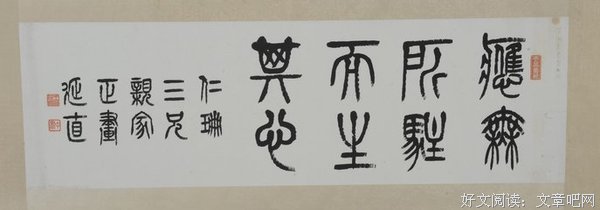 應無
所駐
而生
其心
仁珊
三兄
親家
正
直
好文阅读：文章吧网